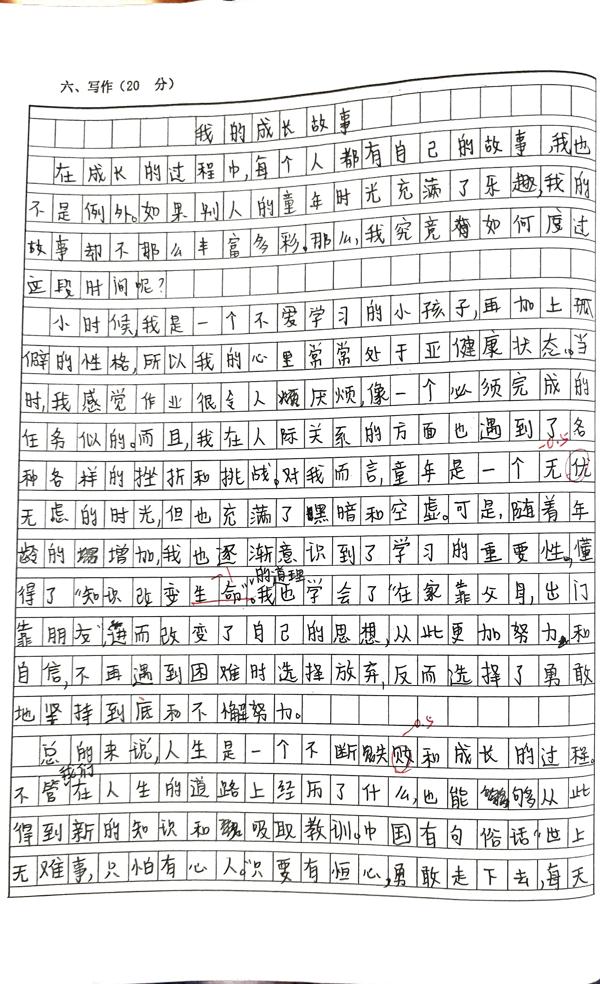 六、写作（20 分）
我的成长故事
在成长的过程中,每个人都有自己的故事,我也
不是例外。如果别人的童年时光充满了乐趣,我的
故事却不那么丰富多彩。那么,我究竟如何度过
这段时间呢?
小时候,我是一个不爱学习的小孩子,再加上孤
僻的性格,所以我的心里常常处于亚健康状态。当
时,我感觉作业很令人厌烦,像一个必须完成的
任务似的。而且,我在人际关系的方面也遇到了各
-0.5
种各样的挫折和挑战。对我而言,童年是一个无优
无虑的时光,但也充满了黑暗和空虚。可是,随着年
龄的增加,我也逐渐意识到了学习的重要性。懂
的道理
得了“知识改变生命”。我也学会了“在家靠父母,出门
靠朋友”进而改变了自己的思想,从此更加努力和
自信,不再遇到困难时选择放弃,反而选择了勇敢
地坚持到底和不懈努力。
-0.5
总的来说,人生是一个不断失败和成长的过程。
我们
不管在人生的道路上经历了什么,也能够从此
得到新的知识和吸取教训。中国有句俗话“世上
无难事,只怕有心人。”只要有恒心,勇敢走下去,每天